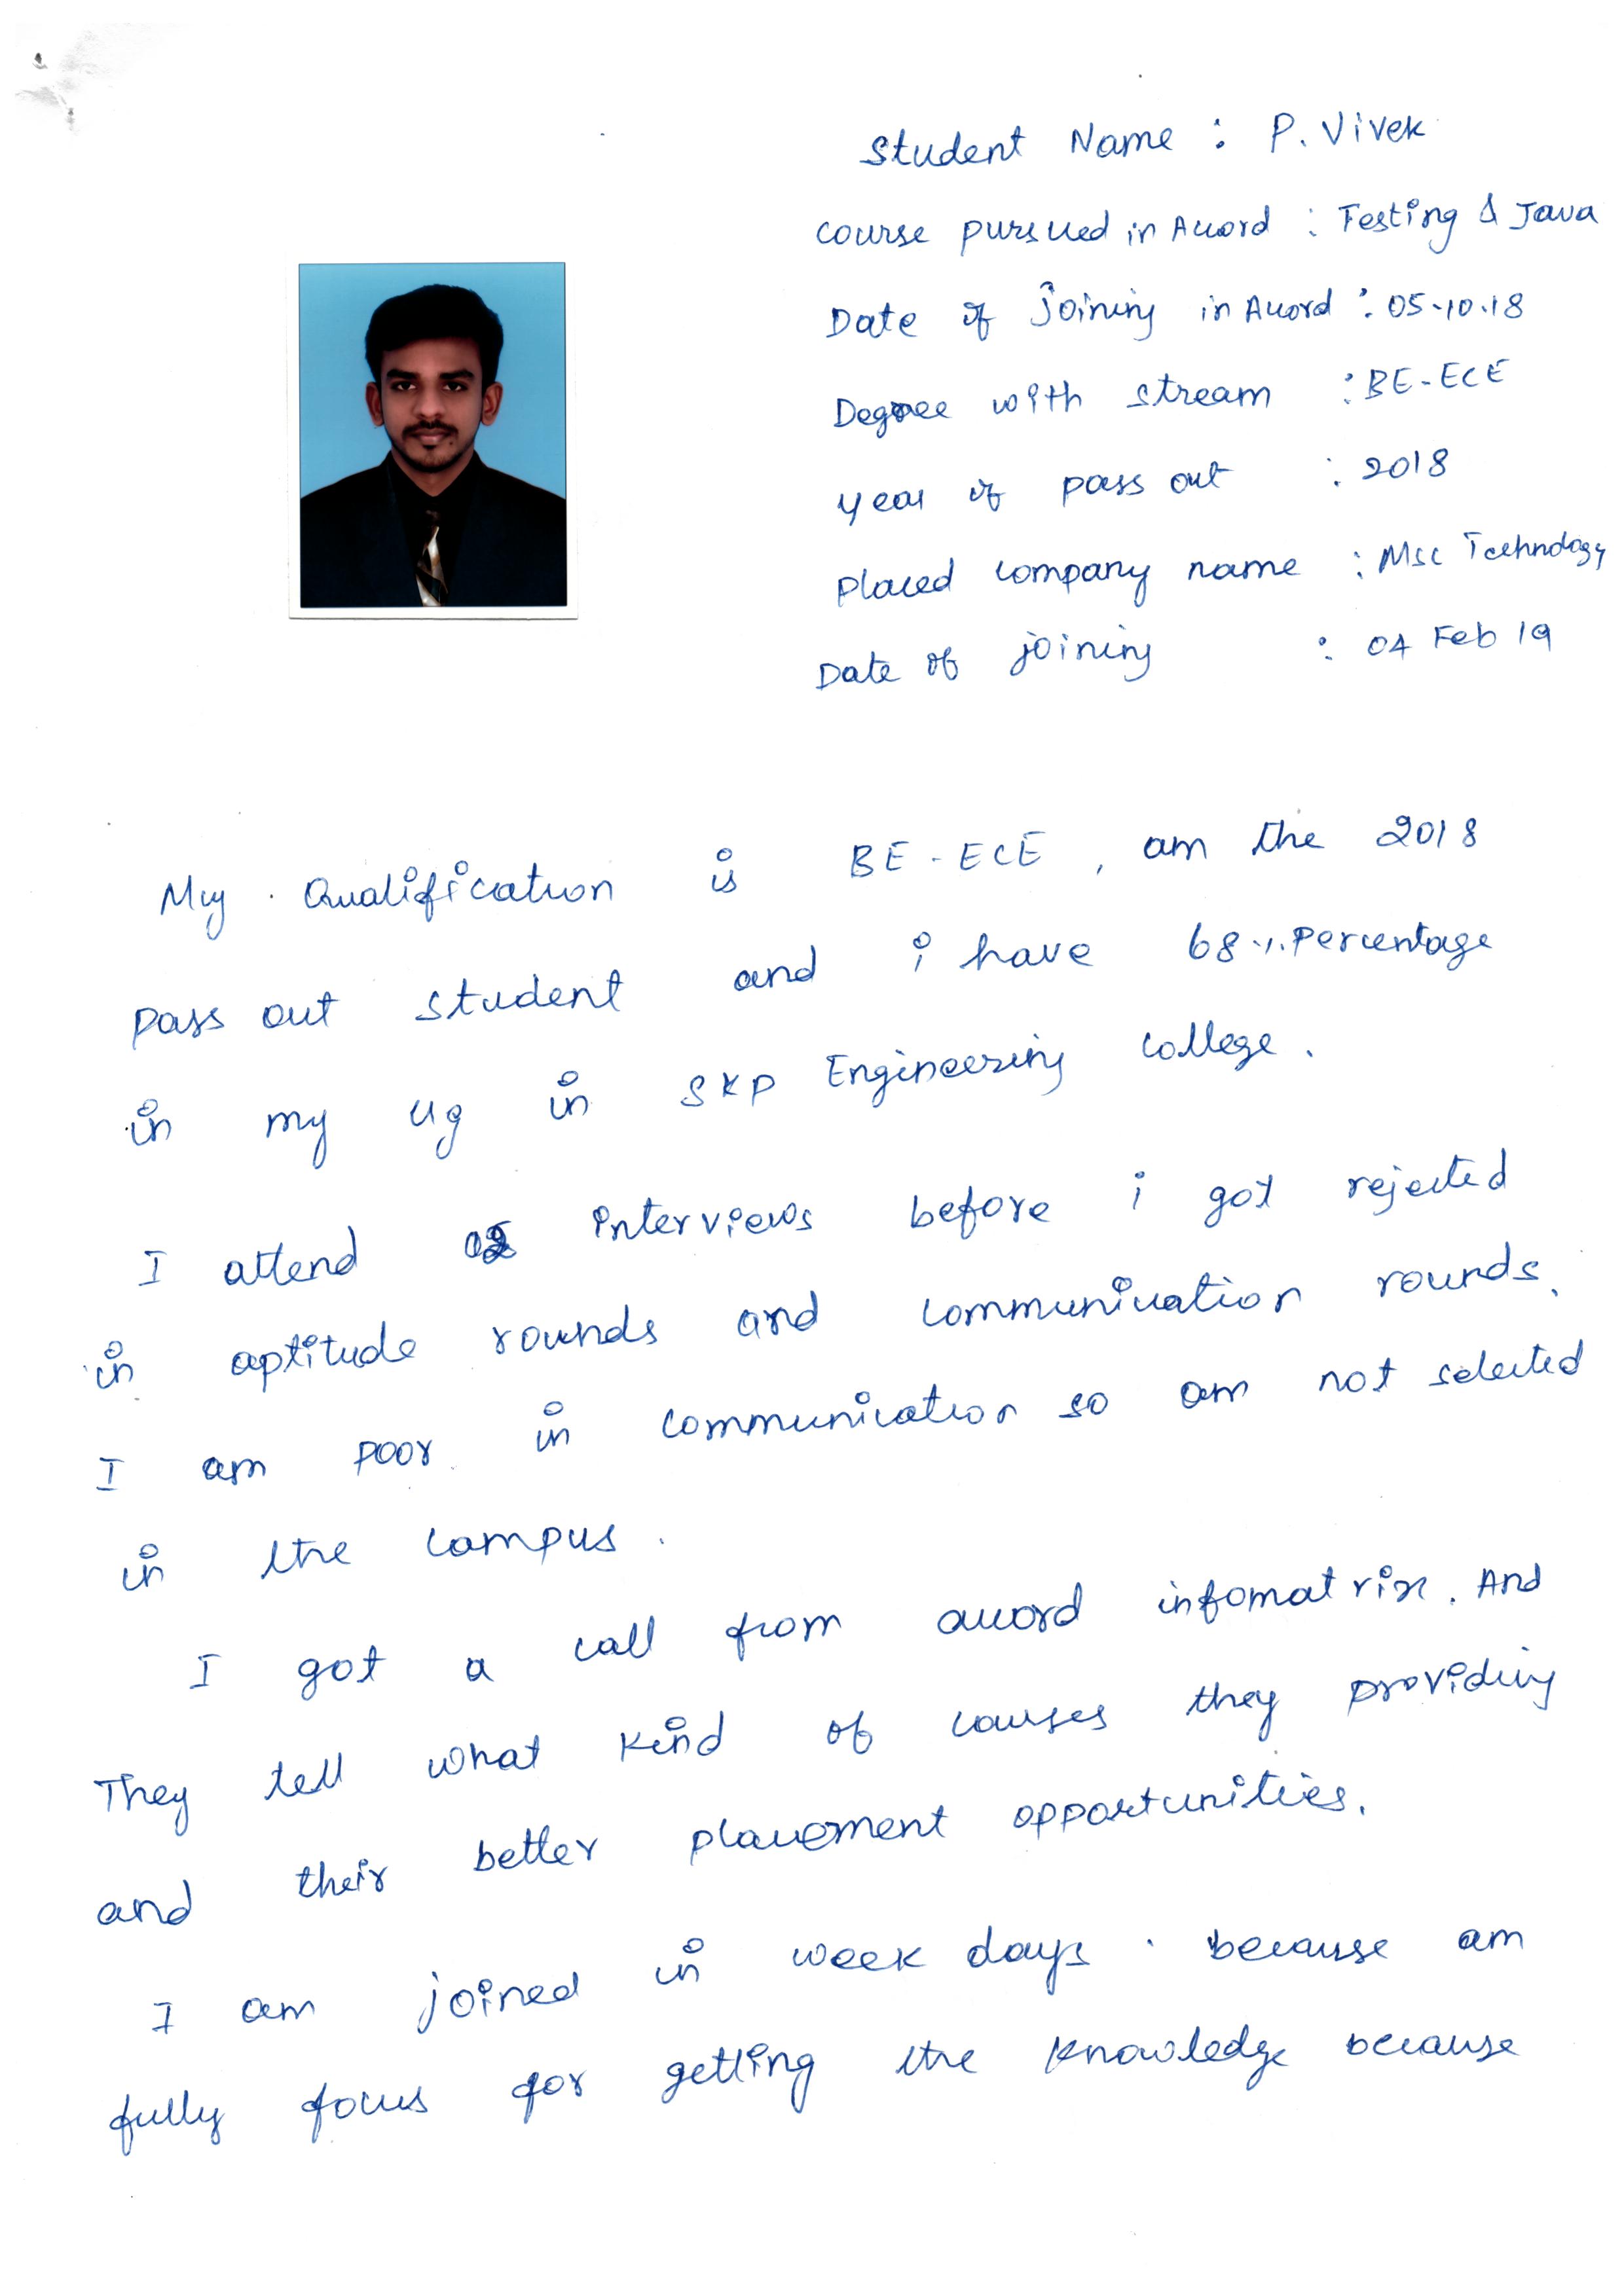 Student Name : P. Vivek
Course pursued in Accord : Testing & Java
Date of Joining in Accord : 05-10-18
Degree with stream : BE-ECE
year of pass out : 2018
Placed company name : Msc Technology
Date of joining : 04 Feb 19
My Qualification is BE-ECE, am the 2018
pass out student and i have 68 %. Percentage
in my ug in SKP Engineering College.
I attend interviews before i got rejected
in aptitude rounds and communication rounds.
I am poor in communication so am not selected
in the campus.
I got a call from accord infomatrix. And
They tell what kind of courses they providing
and their better placement opportunities.
I am joined in week days. because am
fully focus for getting the knowledge because